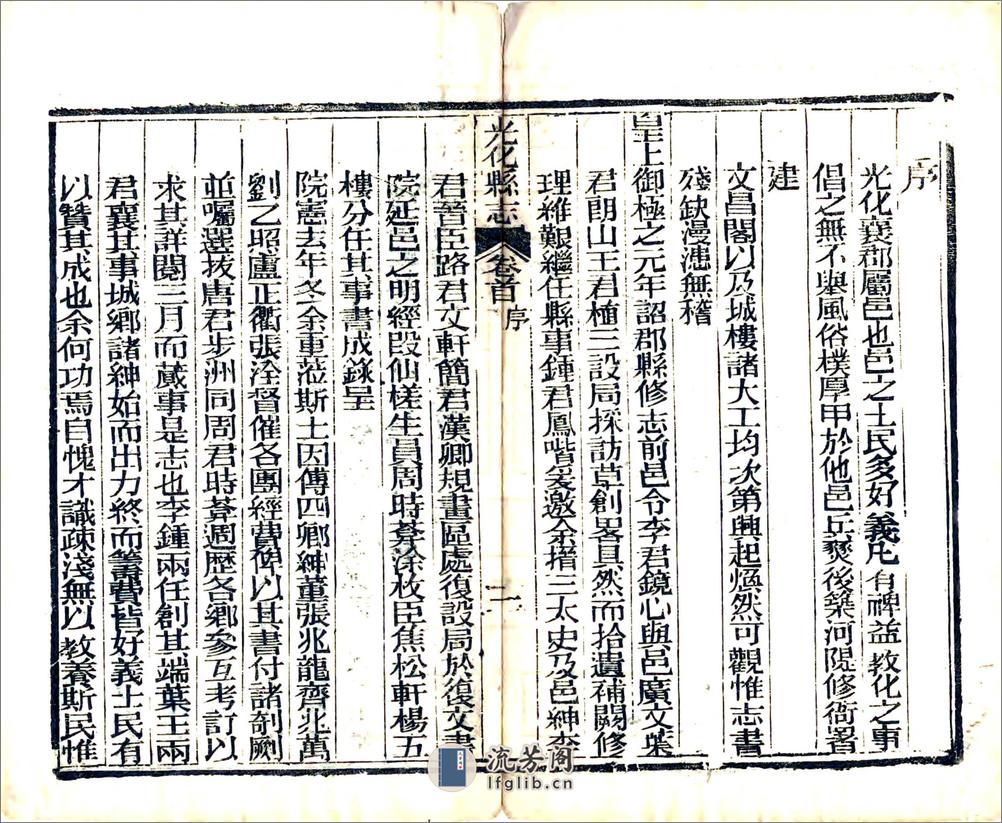 序
光化襄郡屬邑也邑之士民多好義凡有裨益教化之事
倡之無不與風俗樸厚甲於他邑兵燹後築河隄修衙署
建
文昌閣以及城樓諸大工均次第興起煥然可觀惟志書
殘缺漫漶無稽
皇上御極之元年詔郡縣修志前邑令李君鏡心與邑廣文葉
君朗山王君植三設局採訪草創畧具然而拾遺補闕修
理維艱繼任縣事鍾君鳳喈爰邀余搢三太史及邑紳李
光化縣志 卷首 序 二
君晉臣路君文軒簡君漢卿規畫區處復設局於復文書
院延邑之明經段仙槎生員周時葊涂枚臣焦松軒楊五
樓分任其事書成錄呈
院憲去年冬余重蒞斯土因傳四鄉紳董張兆龍齊兆萬
劉乙照盧正衢張洤督催各團經費俾以其書付諸剞劂
並囑選拔唐君步洲同周君時葊週歷各鄉參互考訂以
求其詳閱三月而蕆事是志也李鍾兩任創其端葉王兩
君襄其事城鄉諸紳始而出力終而籌費皆好義士民有
以贊其成也余何功焉自愧才識疎淺無以教養斯民惟
流芳閣
lfglib.cn